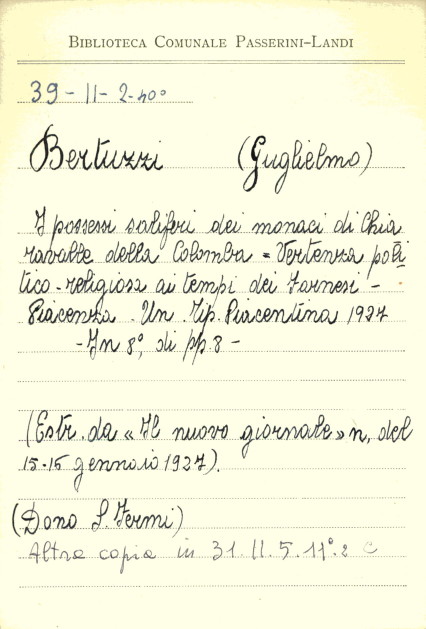 BIBLIOTECA COMUNALE PASSERINI-LANDI
39-11-2-40°
Bertuzzi (Guglielmo)
I possessi saliferi dei monaci di Chia
ravalle della Colomba = Vertenza poli
tico-religiosa ai tempi dei Farnesi -
Piacenza. Un. Tip. Piacentina 1927
- In 8°, di pp. 8 -
(Estr. da « Il nuovo giornale » n, del
15-16 gennaio 1927).
(Dono S. Fermi)
Altra copia in 31.II.5.11°.2 C